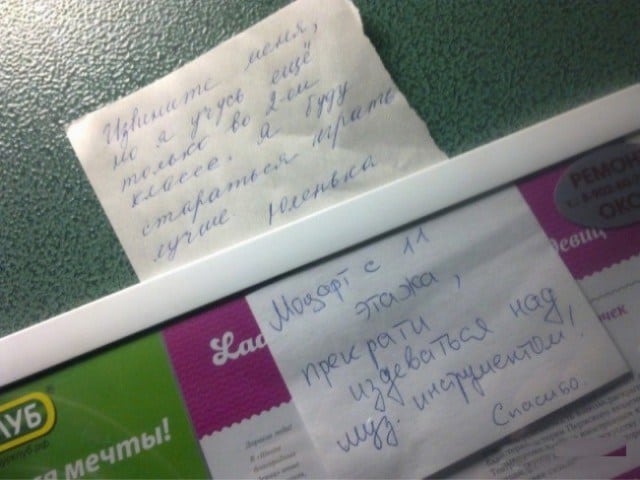 Извините меня,
но я учусь ещё
только во 2-ом
классе. Я буду
стараться играть
лучше Юленька
Моцарт с 11
этажа,
прекрати
издеваться над
муз. инструментом!
Спасибо.
РЕМОН
ОКО
Lad
УБ
мечты!